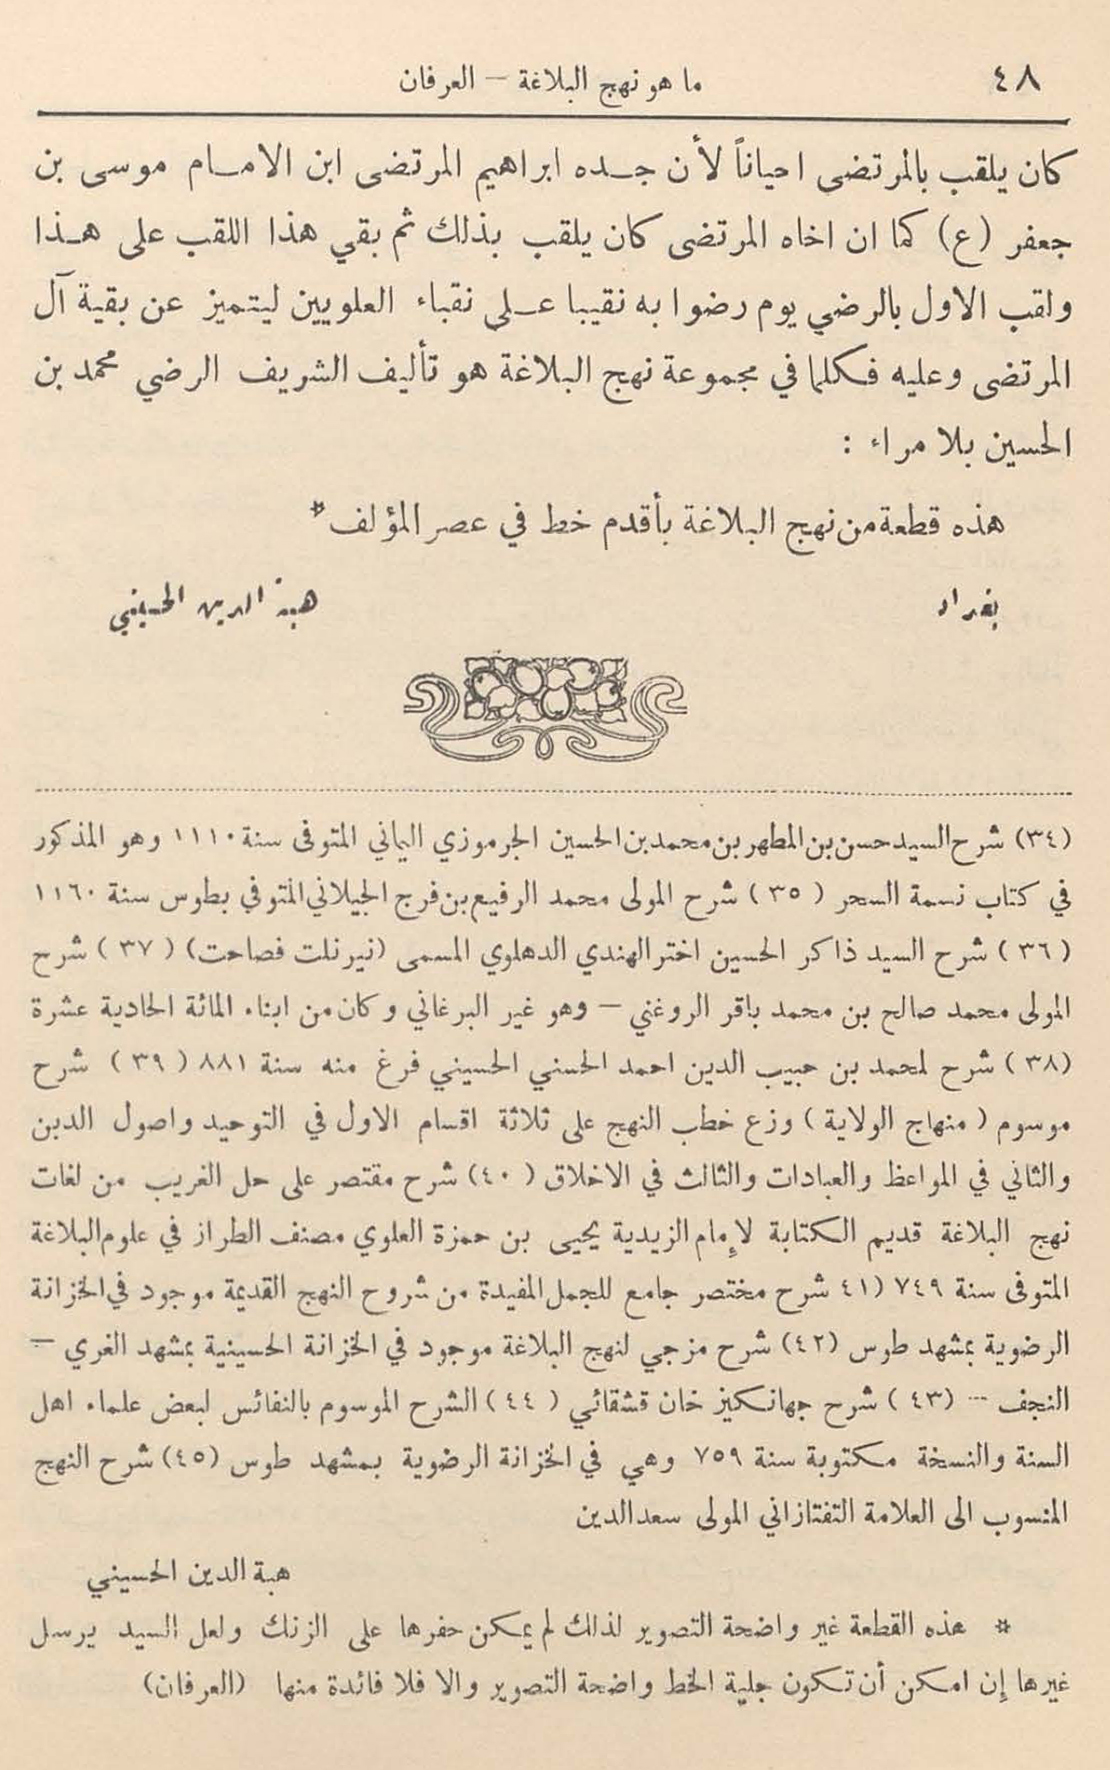 ٤٨ ما هو نهج البلاغة – العرفان
كان يلقب بالمرتضى احياناً لأن جـــده ابراهيم المرتضى ابن الامـــام موسى بن
جعفر (ع) كما ان اخاه المرتضى كان يلقب بذلك ثم بقي هذا اللقب على هـــذا
ولقب الاول بالرضي يوم رضوا به نقيبا عـــلى نقباء العلويين ليتميز عن بقية آل
المرتضى وعليه فكلما في مجموعة نهج البلاغة هو تأليف الشريف الرضي محمد بن
الحسين بلا مراء :
هذه قطعة من نهج البلاغة بأقدم خط في عصر المؤلف *
بغداد هبة الدين الحسيني
(٣٤) شرح السيد حسن بن المطهر بن محمد بن الحسين الجرموزي اليماني المتوفى سنة ١١١٠ وهو المذكور
في كتاب نسمة السحر ( ٣٥ ) شرح المولى محمد الرفيع بن فرج الجيلاني المتوفي بطوس سنة ١١٦٠
( ٣٦ ) شرح السيد ذاكر الحسين اختر الهندي الدهلوي المسمى (نيرنلت فصاحت) ( ٣٧ ) شرح
المولى محمد صالح بن محمد باقر الروغني – وهو غير البرغاني وكان من ابناء المائة الحادية عشرة
(٣٨ ) شرح لمحمد بن حبيب الدين احمد الحسني الحسيني فرغ منه سنة ٨٨١ ( ٣٩ ) شرح
موسوم ( منهاج الولاية ) وزع خطب النهج على ثلاثة اقسام الاول في التوحيد واصول الدين
والثاني في المواعظ والعبادات والثالث في الاخلاق ( ٤٠) شرح مقتصر على حل الغريب من لغات
نهج البلاغة قديم الكتابة لإمام الزيدية يحيى بن حمزة العلوي مصنف الطراز في علوم البلاغة
المتوفى سنة ٧٤٩ (٤١ شرح مختصر جامع للجمل المفيدة من شروح النهج القديمة موجود في الخزانة
الرضوية بمشهد طوس (٤٢) شرح مزجي لنهج البلاغة موجود في الخزانة الحسينية بمشهد الغري –
النجف – (٤٣ ) شرح جهانكيز خان قشقائي ( ٤٤ ) الشرح الموسوم بالنفائس لبعض علماء اهل
السنة والنسخة مكتوبة سنة ٧٥٩ وهي في الخزانة الرضوية بمشهد طوس (٤٥) شرح النهج
المنسوب الى العلامة التفتازاني المولى سعد الدين
هبة الدين الحسيني
* هذه القطعة غير واضحة التصوير لذلك لم يمكن حفرها على الزنك ولعل السيد يرسل
غيرها إن امكن أن تكون جلية الخط واضحة التصوير والا فلا فائدة منها (العرفان)